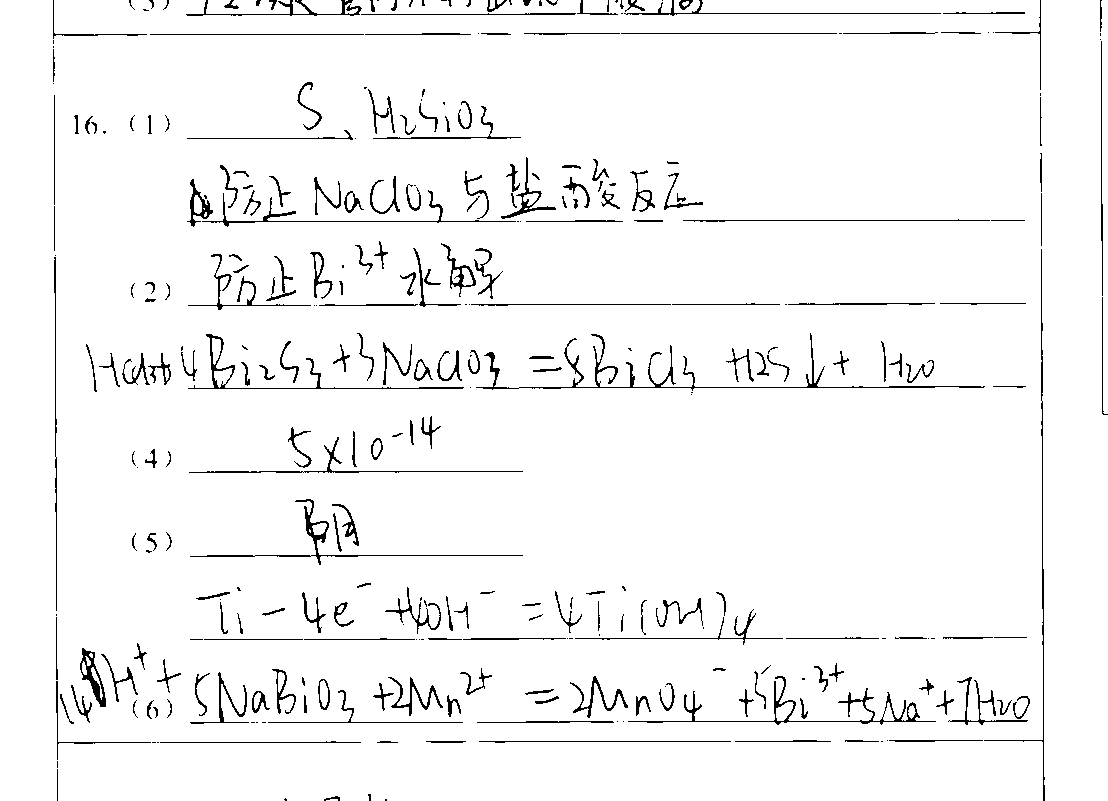 16.（1） S、H2SiO3
防止NaClO3与盐酸反应
（2） 防止Bi3+水解
4Bi2S3+3NaClO3=8BiCl3 +12S↓+ H2O
（4） 5×10-14
（5）
Ti-4e-+4OH-=4Ti(OH)4
14H++
（6） 5NaBiO3+2Mn2+=2MnO4-+5Bi3++5Na++7H2O